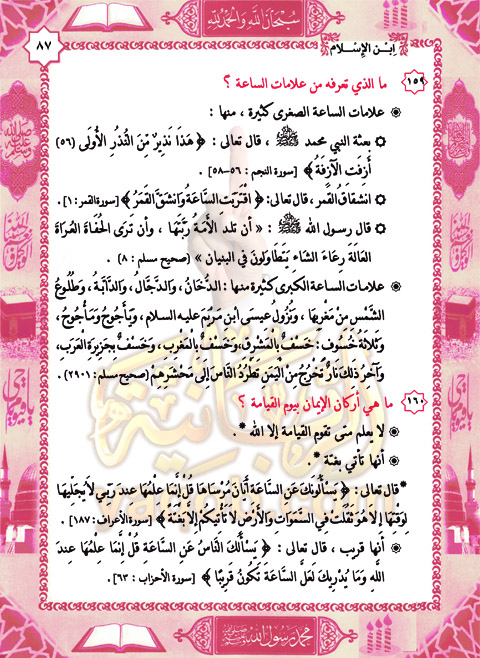 سُبْحَانَ اللَّهِ وَالْحَمْدُ لِلَّهِ
ابن الإسلام
٨٧
١٥٩ ما الذي تعرفه من علامات الساعة ؟
علامات الساعة الصغرى كثيرة ، منها :
بعثة النبي محمد ﷺ ، قال تعالى : ﴿ هَذَا نَذِيرٌ مِّنَ النُّذُرِ الْأُولَى (٥٦)
أَزِفَتِ الْآزِفَةُ ﴾ [سورة النجم : ٥٦-٥٨] .
انشقاق القمر ، قال تعالى: ﴿ اقْتَرَبَتِ السَّاعَةُ وَانْشَقَّ الْقَمَرُ ﴾ [سورة القمر : ١] .
قال رسول الله ﷺ : « أن تلد الأمَةُ رَبَّتَهَا ، وأن تَرَى الحُفَاةَ العُرَاةَ
العَالَةَ رِعَاءَ الشَّاءِ يَتَطَاوَلُونَ في البنيان » (صحيح مسلم : ٨) .
علامات الساعة الكبرى كثيرة منها : الدُّخَانُ، وَالدَّجَّالُ، وَالدَّابَّةُ، وَطُلُوعُ
الشَّمْسِ مِنْ مَغْرِبِهَا، وَنُزُولُ عِيسَى ابن مَرْيَمَ عليه السلام ، وَيَأْجُوجَ وَمَأْجُوجَ،
وَثَلَاثَةُ خُسُوفٍ: خَسْفٌ بِالْمَشْرِقِ، وَخَسْفٌ بِالْمَغْرِبِ، وَخَسْفٌ بِجَزِيرَةِ الْعَرَبِ،
وَآخِرُ ذَلِكَ نَارٌ تَخْرُجُ مِنَ الْيَمَنِ تَطْرُدُ النَّاسَ إِلَى مَحْشَرِهِمْ (صحيح مسلم : ٢٩٠١) .
١٦٠ ما هي أركان الإيمان بيوم القيامة ؟
لا يعلم متى تقوم القيامة إلا الله * .
أنها تأتي بغتة * .
* قال تعالى : ﴿ يَسْأَلُونَكَ عَنِ السَّاعَةِ أَيَّانَ مُرْسَاهَا قُلْ إِنَّمَا عِلْمُهَا عِندَ رَبِّي لاَ يُجَلِّيهَا
لِوَقْتِهَا إِلاَّ هُوَ ثَقُلَتْ فِي السَّمَوَاتِ وَالأَرْضِ لاَ تَأْتِيكُمْ إِلاَّ بَغْتَةً ﴾ [سورة الأعراف : ١٨٧] .
أنها قريب ، قال تعالى : ﴿ يَسْأَلُكَ النَّاسُ عَنِ السَّاعَةِ قُلْ إِنَّمَا عِلْمُهَا عِندَ
اللَّهِ وَمَا يُدْرِيكَ لَعَلَّ السَّاعَةَ تَكُونُ قَرِيبًا ﴾ [سورة الأحزاب : ٦٣] .
محمد رسول الله ﷺ